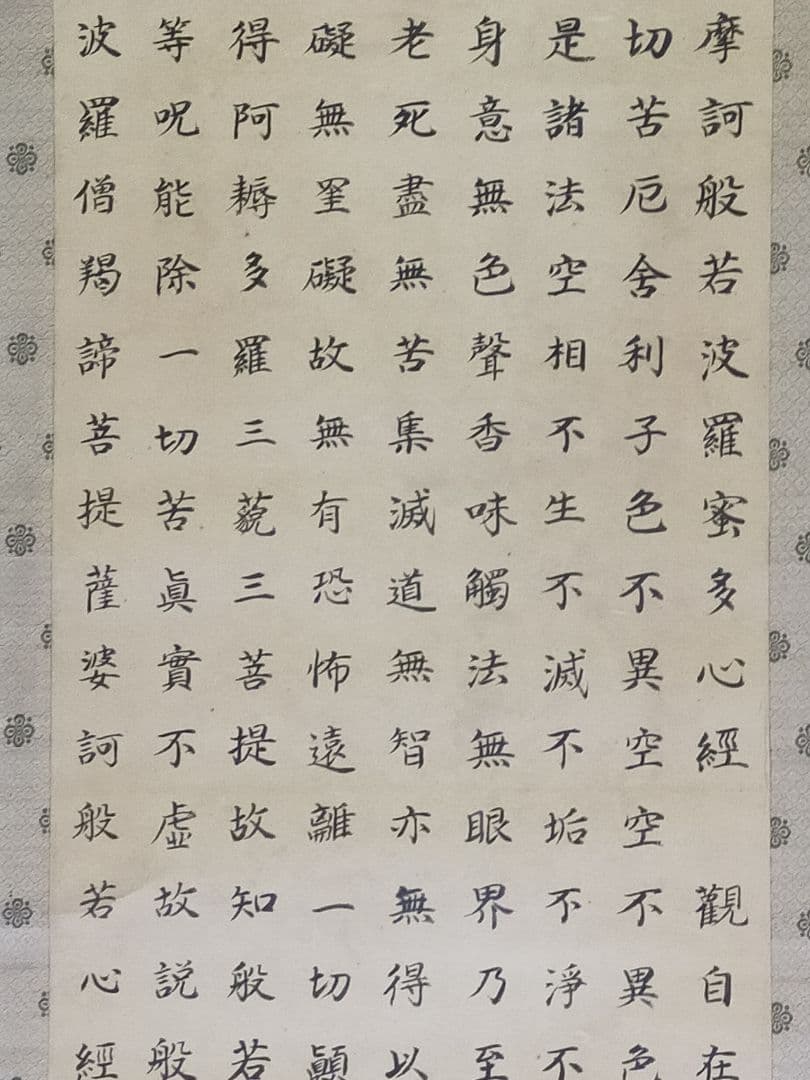 摩訶般若波羅蜜多心經 觀自在
切苦厄舍利子色不異空空不異色
是諸法空相不生不滅不垢不淨不
身意無色聲香味觸法無眼界乃至
老死盡無苦集滅道無智亦無得以
礙無罣礙故無有恐怖遠離一切顚
得阿耨多羅三藐三菩提故知般若
等呪能除一切苦眞實不虛故説般
波羅僧羯諦菩提薩婆訶般若心經